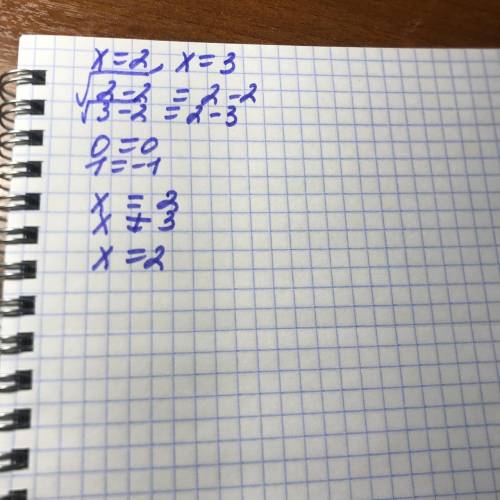 x = 2, x = 3
√2-2 = 2-2
√3-2 = 2-3
0 = 0
1 = -1
x = 2
x ≠ 3
x = 2